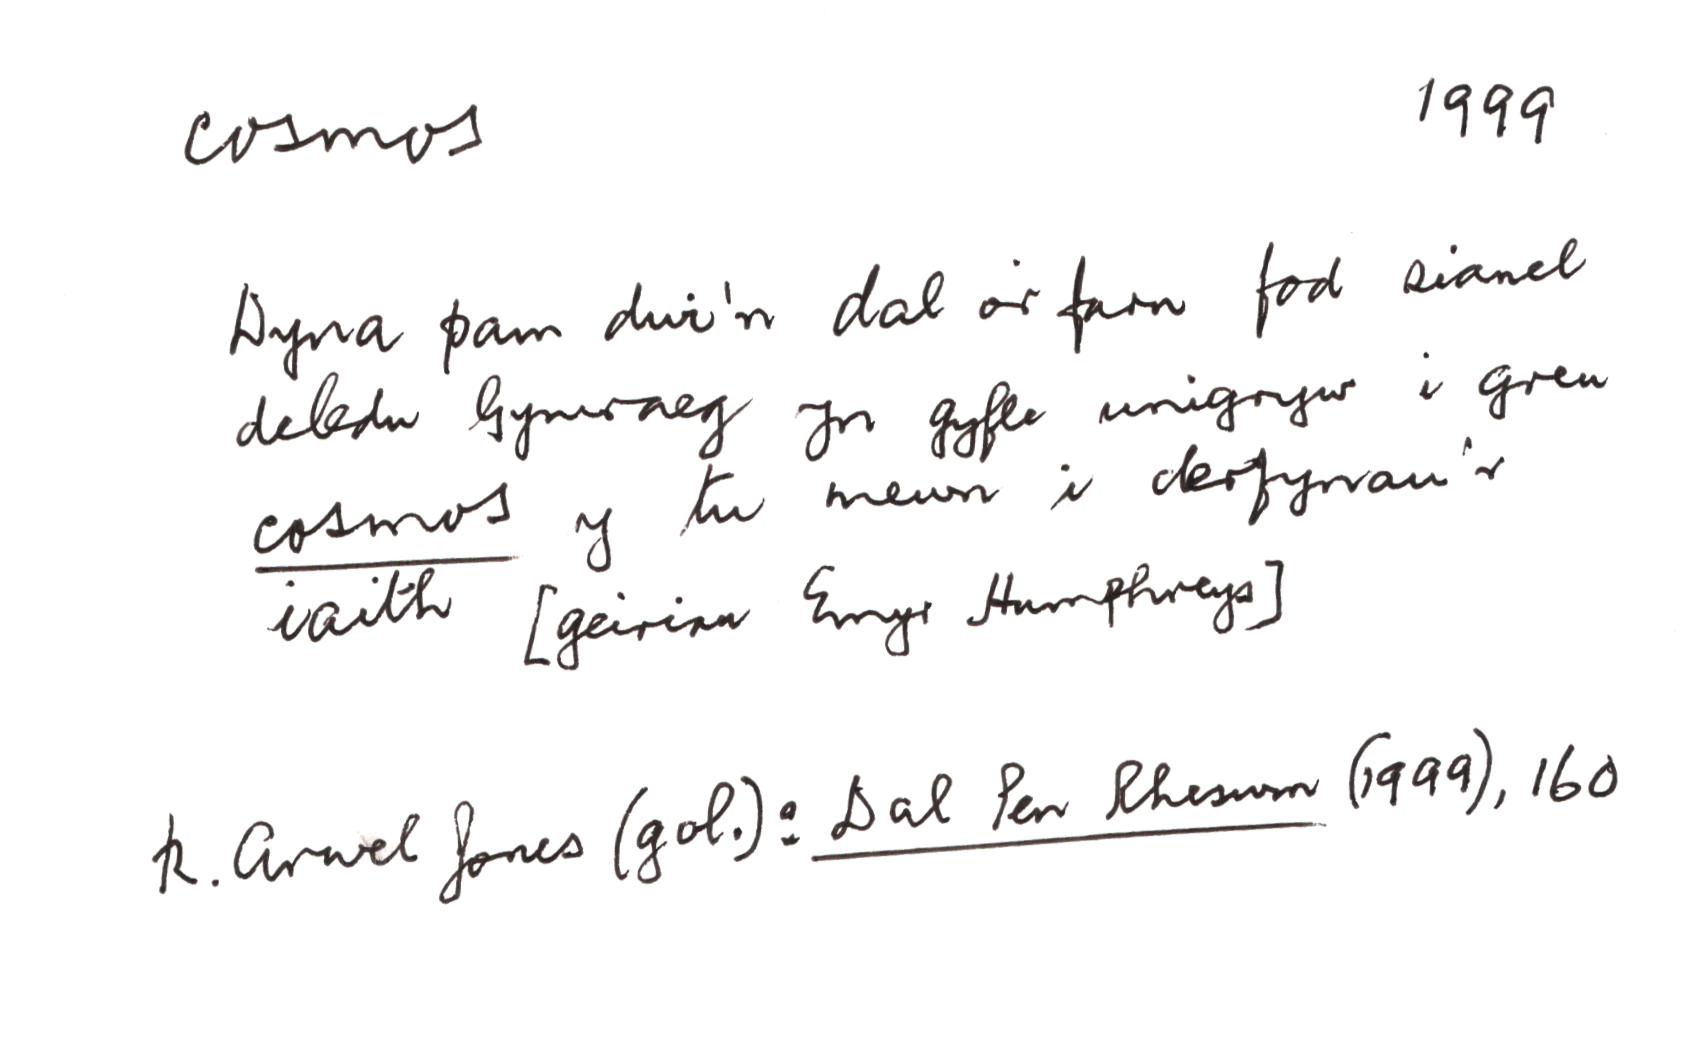 cosmos 1999
Dyna pam dwi'n dal o'r farn fod sianel
deledu Gymraeg yn gyfle unigryw i greu
cosmos y tu mewn i derfynau'r
iaith [geiriau Emyr Humphreys]
R. Arwel Jones (gol.): Dal Pen Rheswm (1999), 160